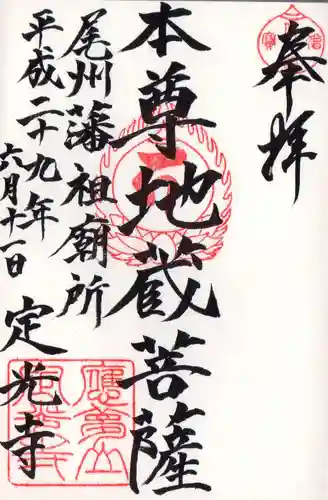 奉拝
本尊地蔵菩薩
尾州藩祖廟所
平成二十九年
六月十一日
定光寺